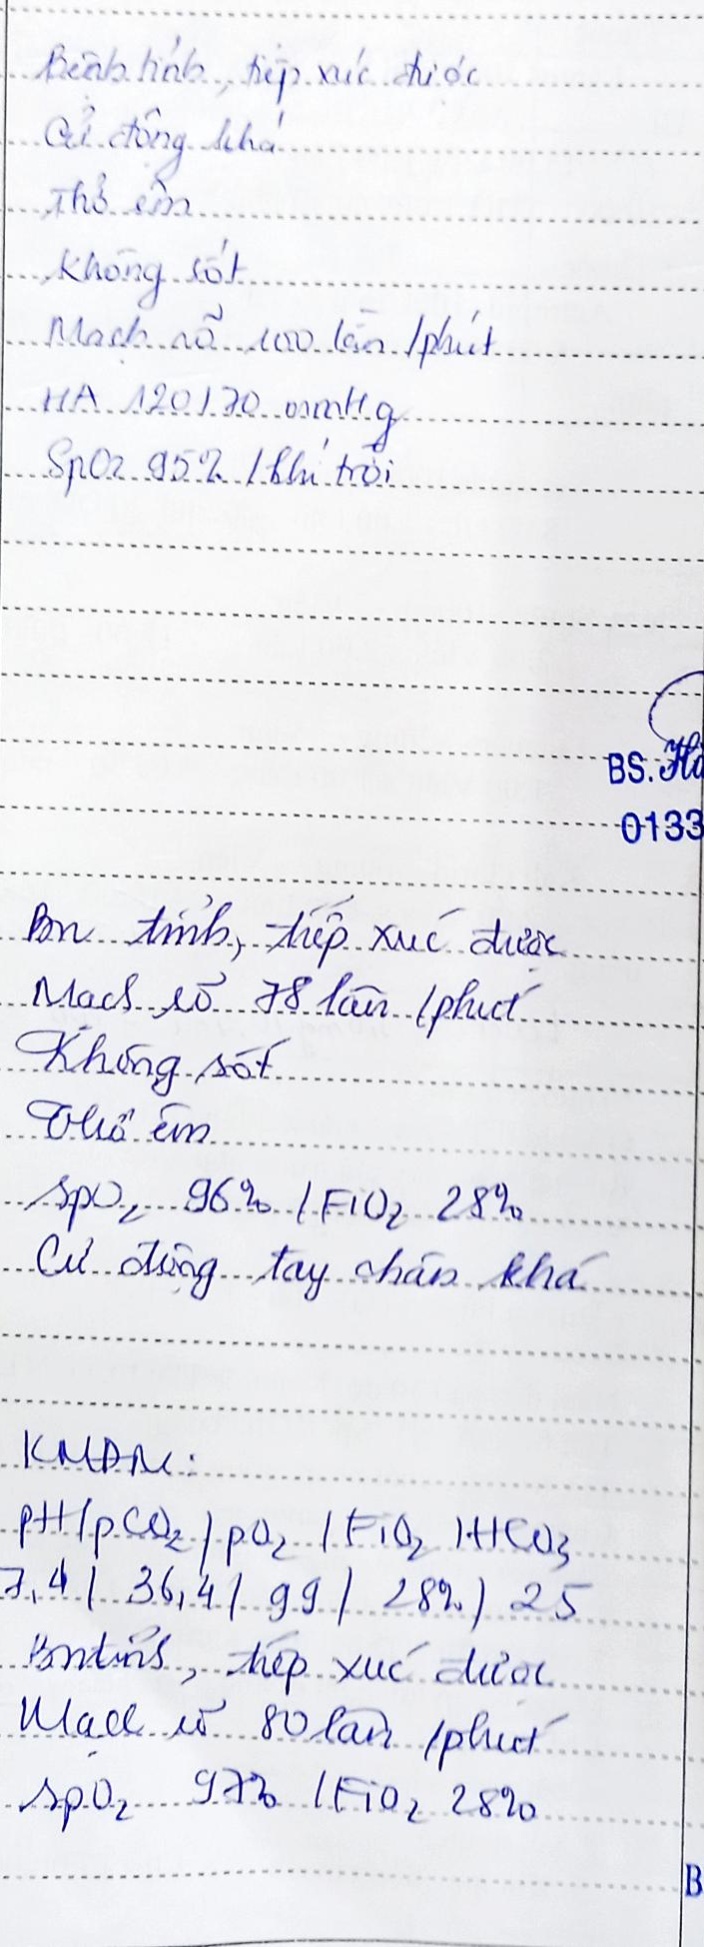 Bệnh tỉnh, tiếp xúc được
Cử động khá
Thở êm
Không sốt
Mạch rõ 100 lần/phút
HA 120/70 mmHg
SpO2 95% / khí trời
BS.
0133
Bn tỉnh, tiếp xúc được
Mạch rõ 78 lần/phút
Không sốt
Thở êm
SpO2 96% / FiO2 28%
Cử động tay chân khá
KMĐM:
pH/pCO2/pO2/FiO2/HCO3
7,4/ 36,4/ 99/ 28%/ 25
Bn tỉnh, tiếp xúc được
Mạch rõ 80 lần/phút
SpO2 97% / FiO2 28%
B